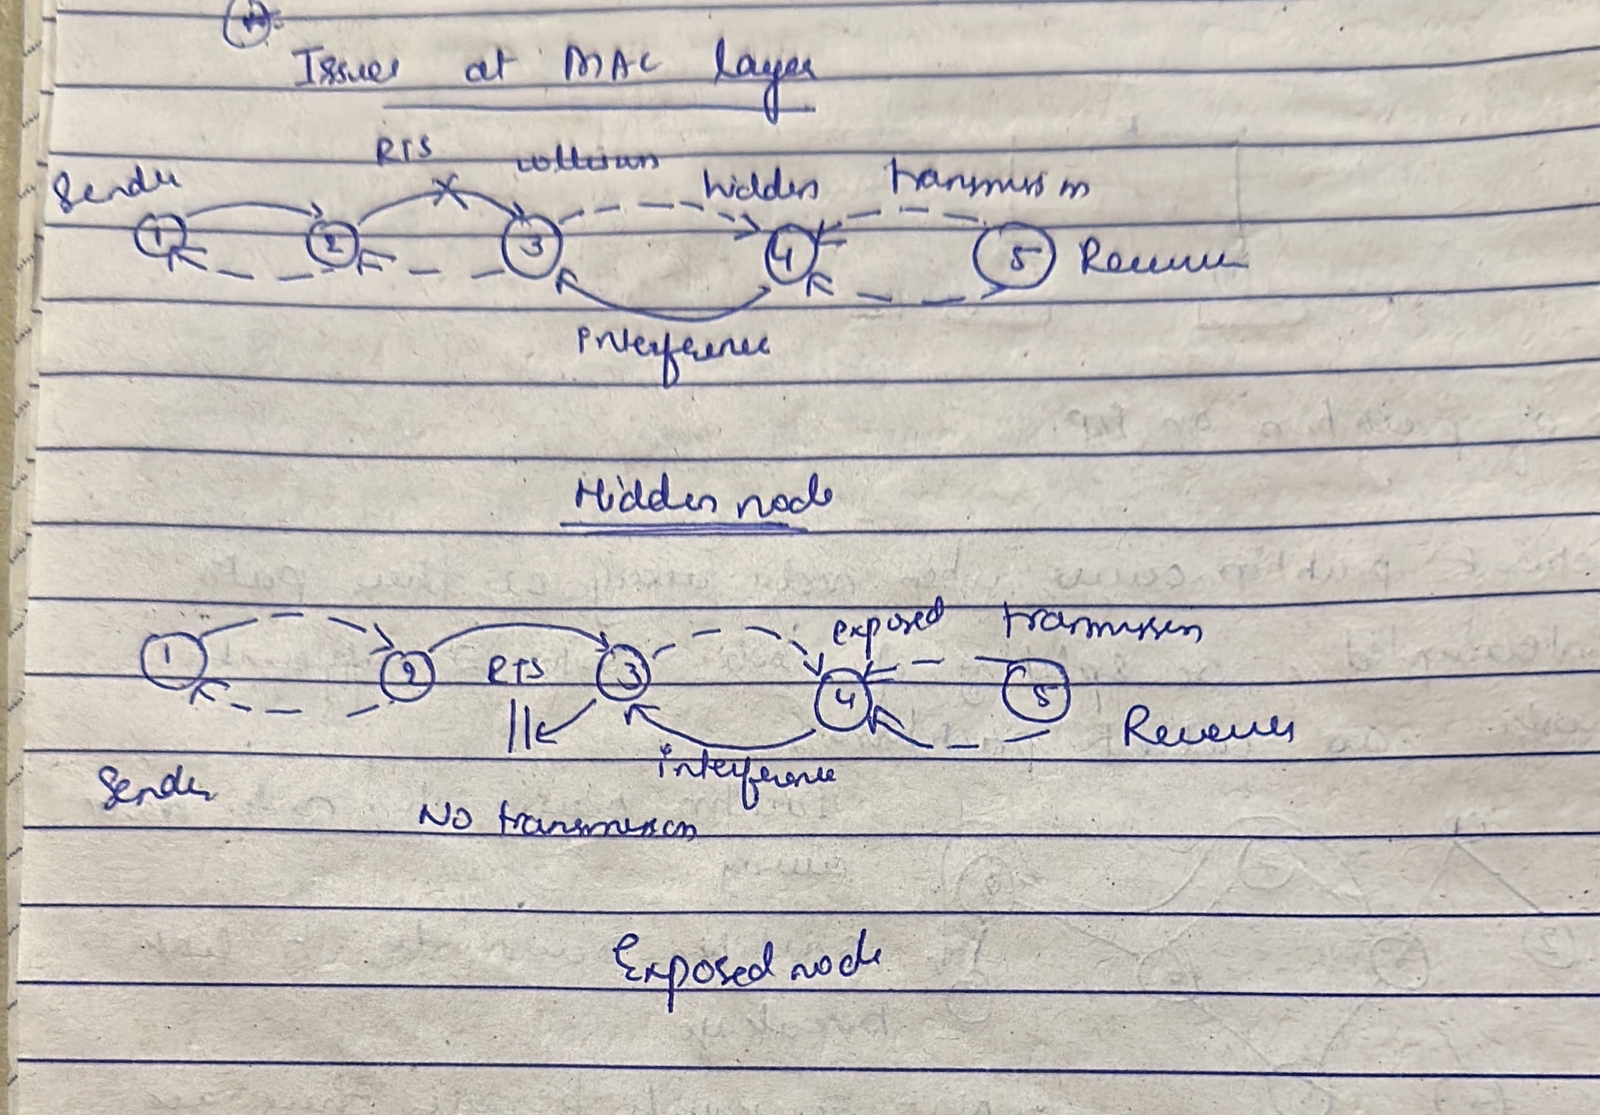 Issues at MAC layer
RTS collision
Sender hidden transmission
1 2 3 4 5 Receiver
Interference
Hidden node
exposed transmission
1 2 RTS 3 4 5
Receiver
interference
Sender
No transmission
Exposed node